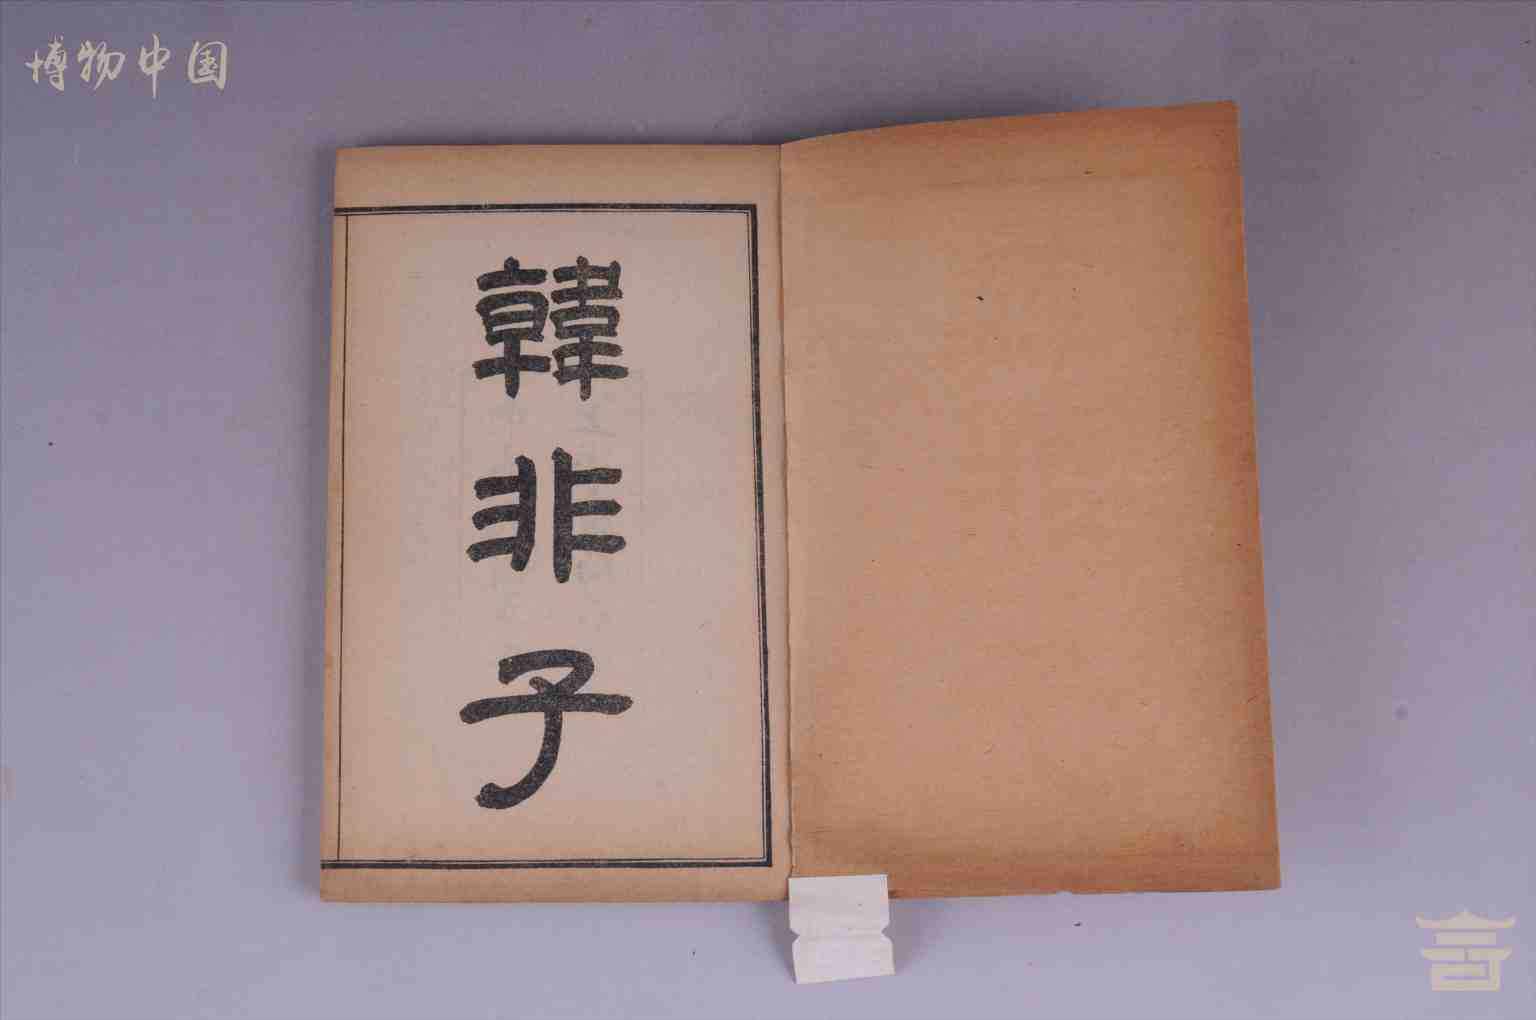 博物中国
韓非子